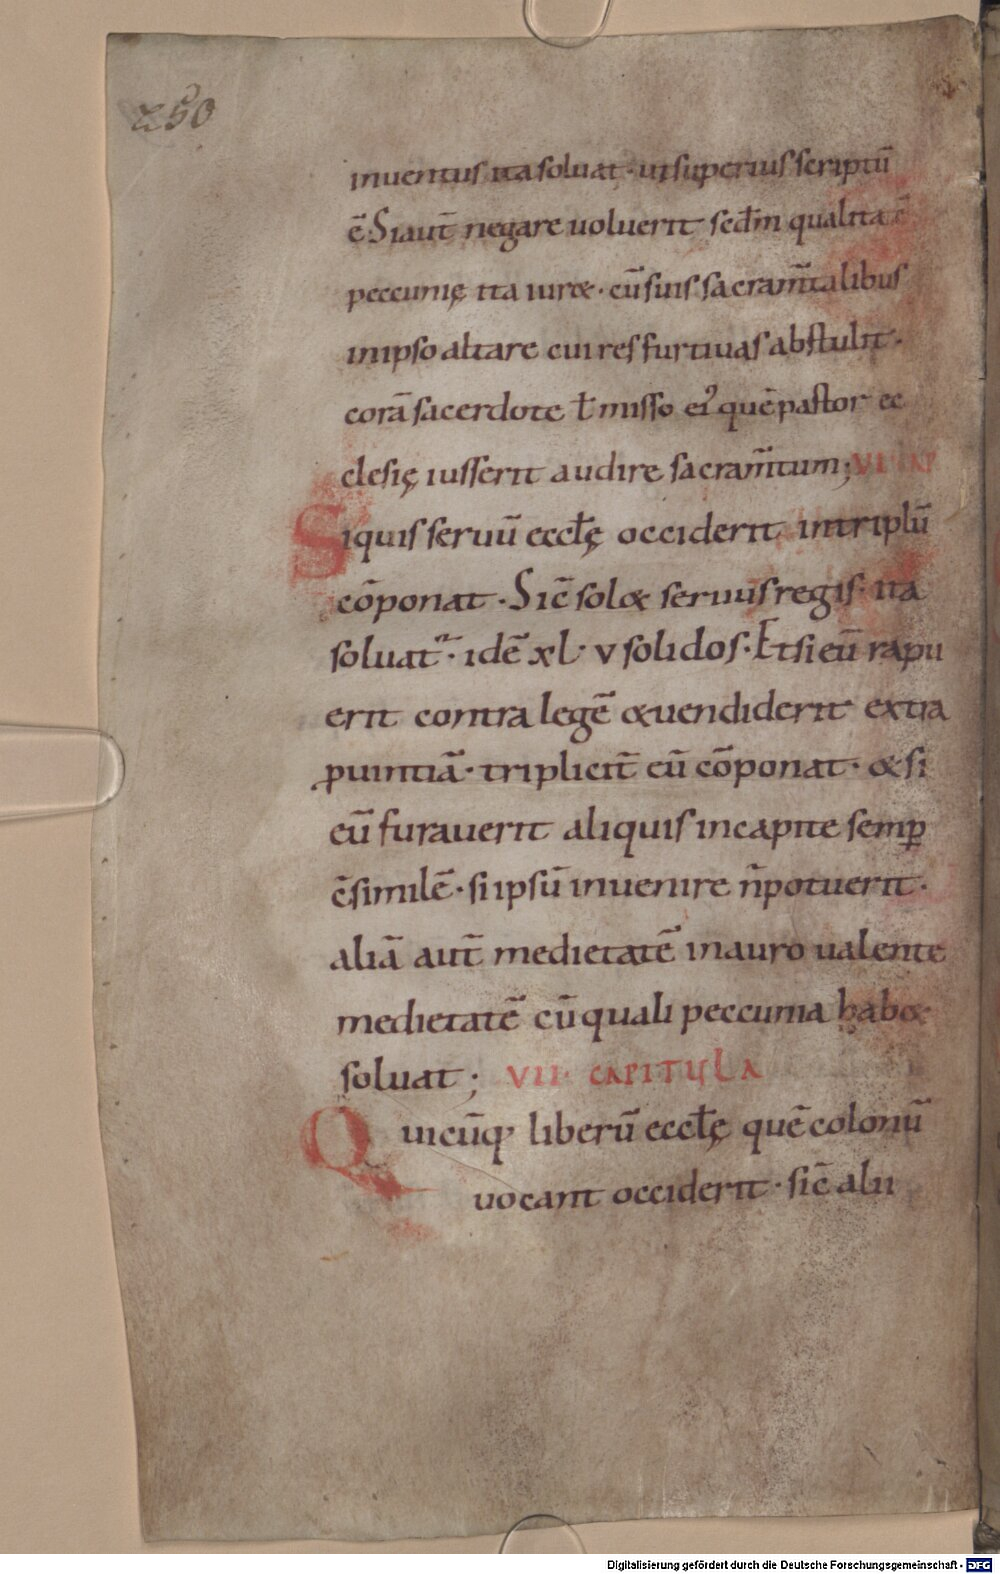 250
inuentus ita soluat · ut superius scriptū
ē Si aut̄ negare uoluerit sed̄m qualitatē
peccunię ita iur& · cū suis sacram̄talibus
in ipso altare cui res furtiuas abstulit ·
corā sacerdote ł misso ei' quē pastor ec
clesię iusserit audire sacram̄tum ; VI
Siquis seruū eccłę occiderit in triplū
cōponat · Sic̄ sol& seruus regis · ita
soluat̄ · idē xl · v solidos · Et si eū rapu
erit contra legē &uendiderit extra
ꝓuintiā · triplicit̄ eū cōponat · & si
eū furauerit aliquis in capite semꝑ
c̄similē · si ipsū inuenire n̄ potuerit ·
aliā aut̄ medietatē in auro ualente
medietatē cū quali peccunia hab&
soluat ; VII · CAPITULA
Quicūq; liberū eccłę quē colonū
uocant occiderit · sic̄ alii
Digitalisierung gefördert durch die Deutsche Forschungsgemeinschaft - DFG